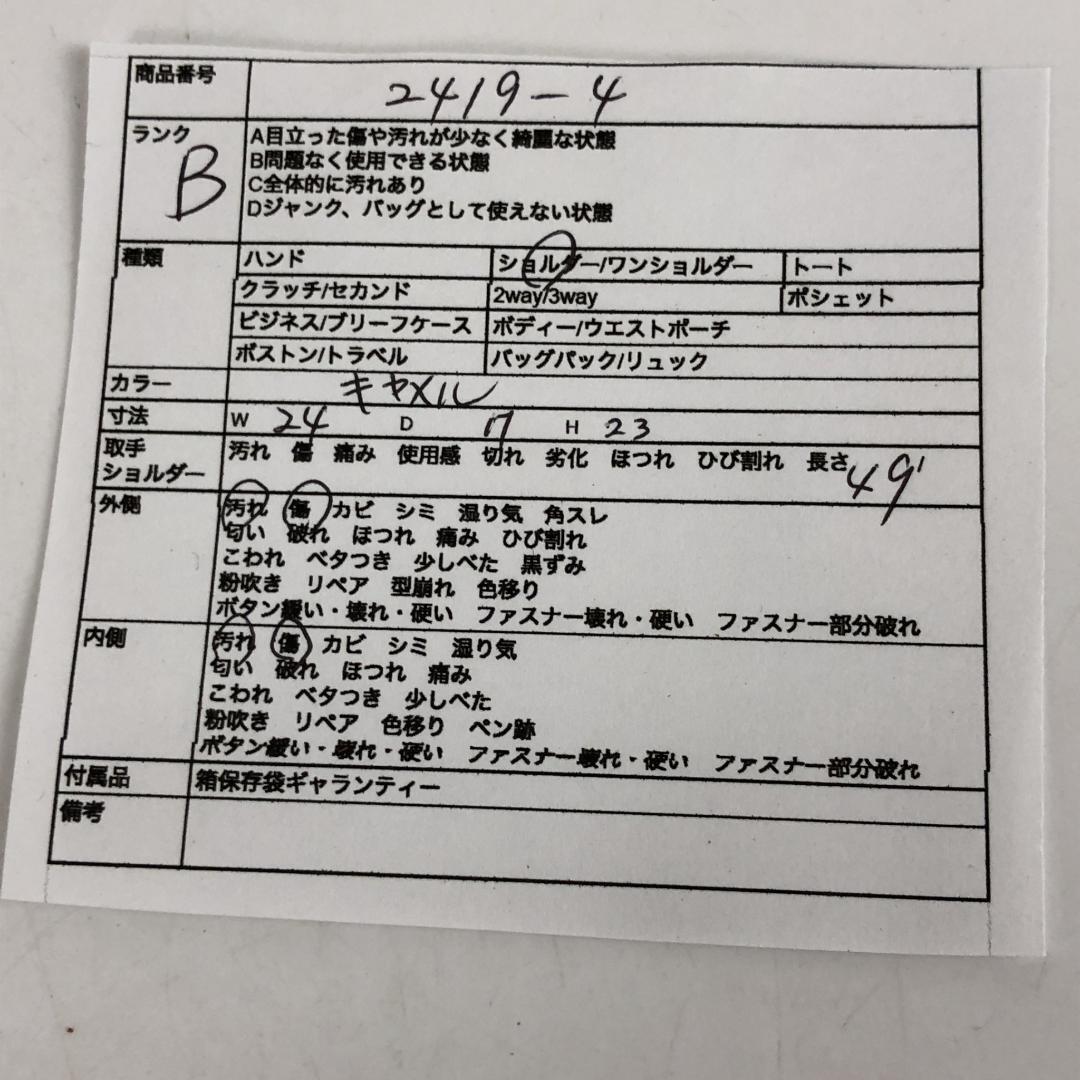 商品番号 2419-4
ランク B
A目立った傷や汚れが少なく綺麗な状態
B問題なく使用できる状態
C全体的に汚れあり
Dジャンク、バッグとして使えない状態
種類 ハンド ショルダー/ワンショルダー トート
クラッチ/セカンド 2way/3way ポシェット
ビジネス/ブリーフケース ボディー/ウエストポーチ
ボストン/トラベル バッグパック/リュック
カラー キャメル
寸法 W 24 D 17 H 23
取手 汚れ 傷 痛み 使用感 切れ 劣化 ほつれ ひび割れ 長さ 49
ショルダー
外側 汚れ 傷 カビ シミ 湿り気 角スレ
匂い 破れ ほつれ 痛み ひび割れ
こわれ ベタつき 少しべた 黒ずみ
粉吹き リペア 型崩れ 色移り
ボタン緩い・壊れ・硬い ファスナー壊れ・硬い ファスナー部分破れ
内側 汚れ 傷 カビ シミ 湿り気
匂い 破れ ほつれ 痛み
こわれ ベタつき 少しべた
粉吹き リペア 色移り ペン跡
ボタン緩い・壊れ・硬い ファスナー壊れ・硬い ファスナー部分破れ
付属品 箱保存袋ギャランティー
備考